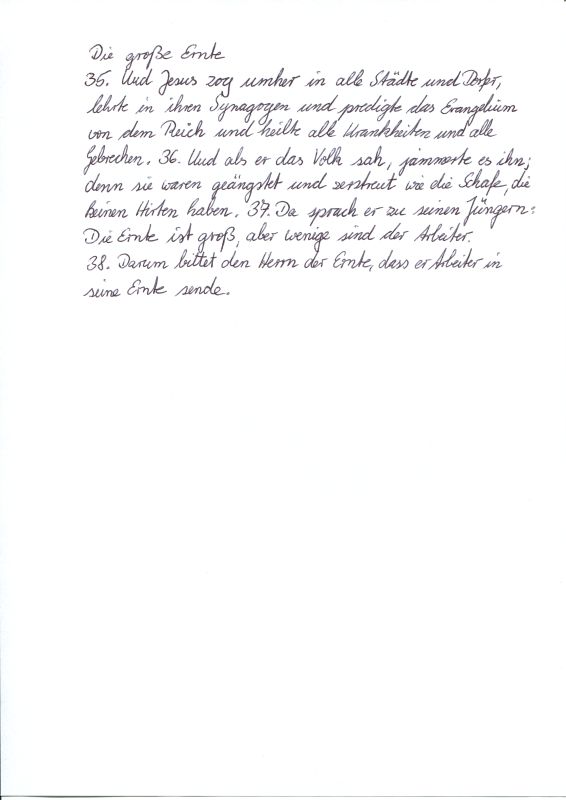 Die große Ernte
35. Und Jesus zog umher in alle Städte und Dörfer,
lehrte in ihren Synagogen und predigte das Evangelium
von dem Reich und heilte alle Krankheiten und alle
Gebrechen. 36. Und als er das Volk sah, jammerte es ihn;
denn sie waren geängstet und zerstreut wie die Schafe, die
keinen Hirten haben. 37. Da sprach er zu seinen Jüngern:
Die Ernte ist groß, aber wenige sind der Arbeiter.
38. Darum bittet den Herrn der Ernte, dass er Arbeiter in
seine Ernte sende.